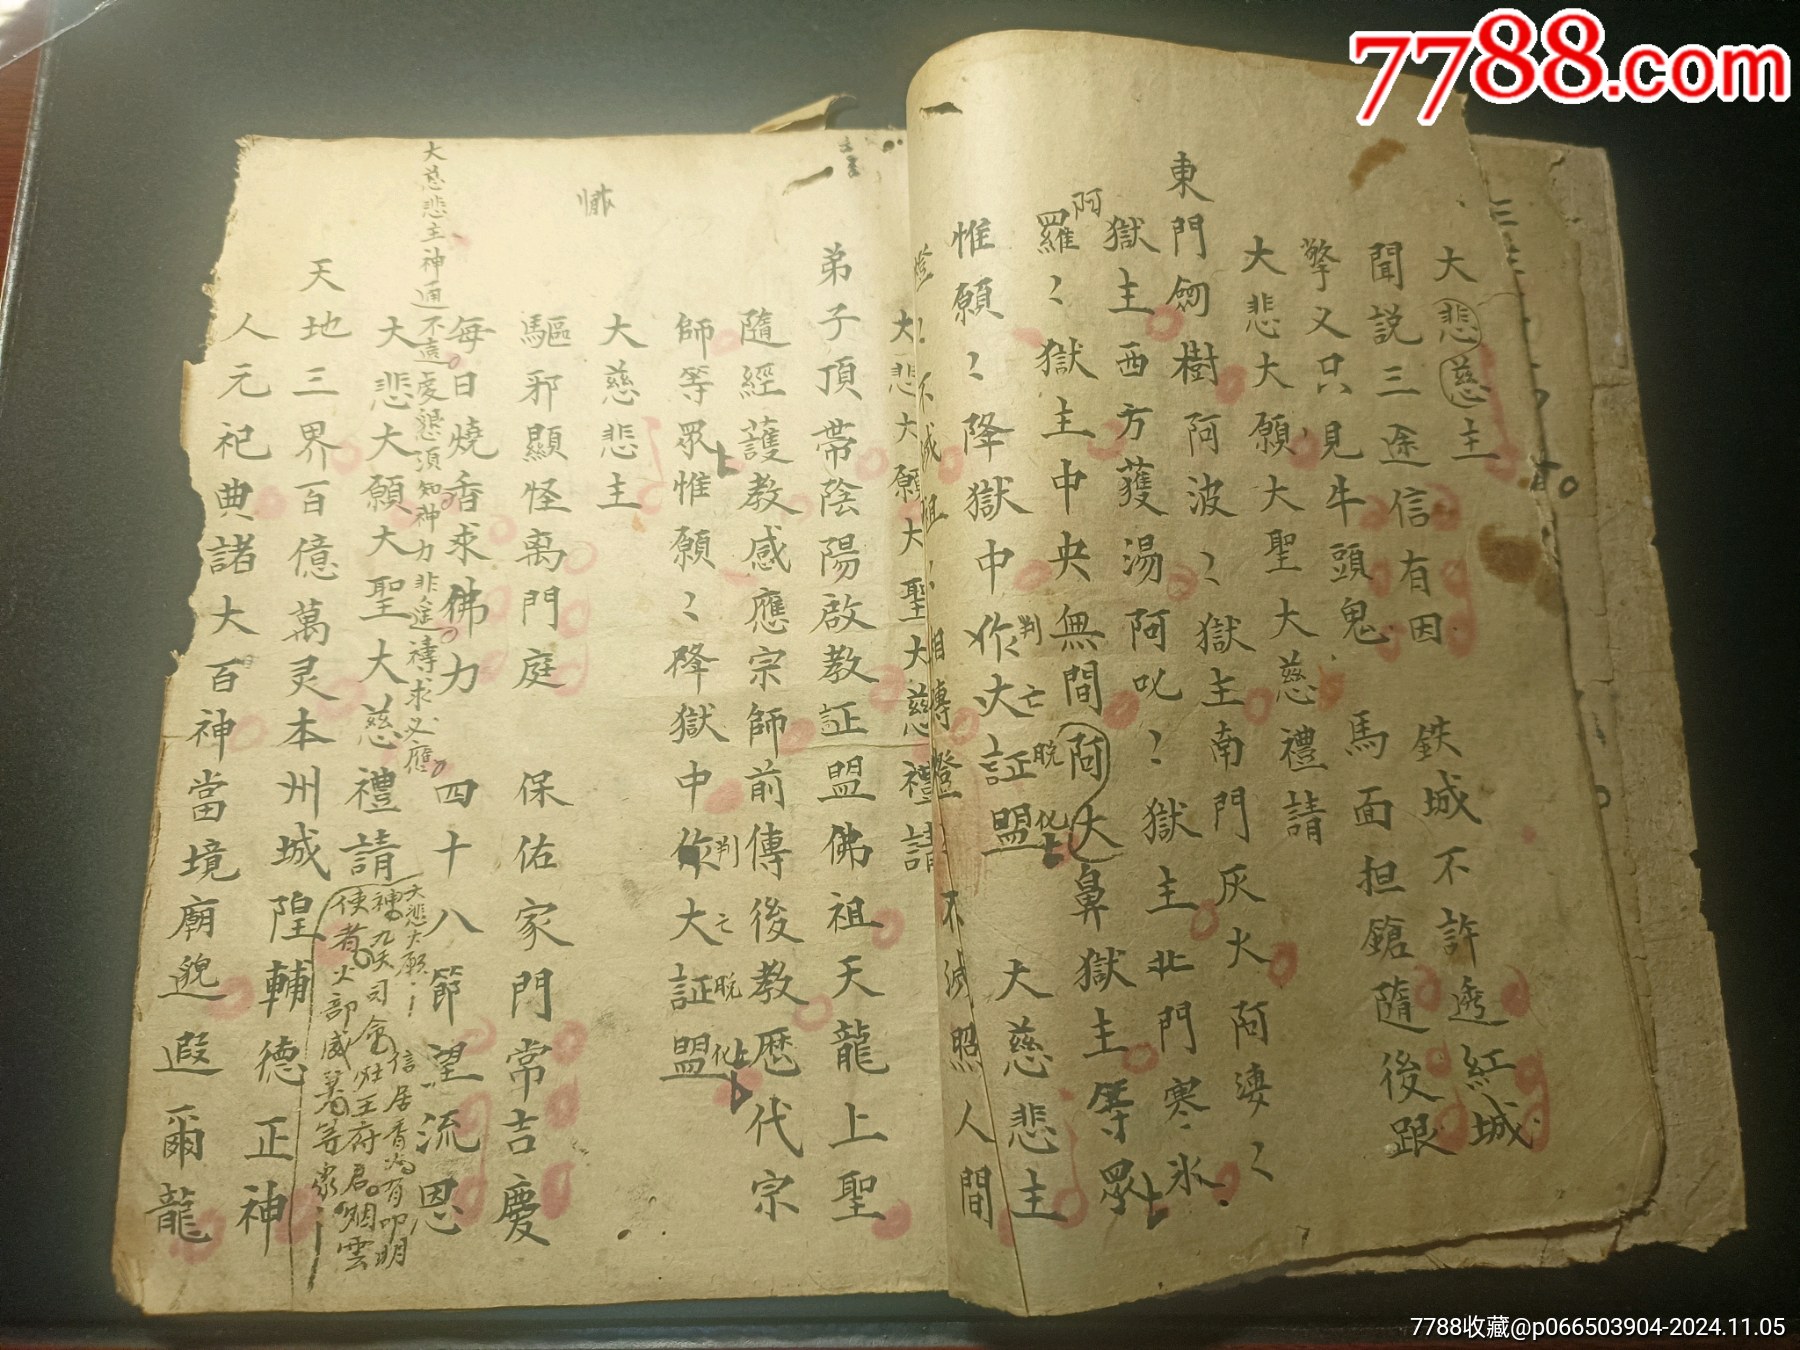 7788.com
大悲慈主
聞説三途信有因 鉄城不許透紅城
擎叉只見牛頭鬼 馬面担鎗隨後跟
大悲大願大聖大慈禮請
東門劔樹阿波〻獄主南門灰火阿淒〻
獄主西方獲湯阿叱〻獄主北門寒氷
阿羅〻獄主中央無間阿大鼻獄主等眾
大慈悲主
惟願〻降獄中作大証盟
判亡脱化
不滅照人間
大悲大願大聖大慈禮請
弟子頂帶陰陽啟教証盟佛祖天龍上聖
隨經護教感應宗師前傳後教歷代宗
師等眾惟願〻降獄中作大証盟
判亡脱化
大慈悲主
驅邪顯怪离門庭 保佑家門常吉慶
每日燒香求佛力 四十八節望流恩
大慈悲主神通不遠處懇須知神力非遙禱求必應
大悲大願大聖大慈禮請
天地三界百億萬灵本州城隍輔德正神
人元祀典諸大百神當境廟貌遐爾龍
7788收藏@p066503904-2024.11.05